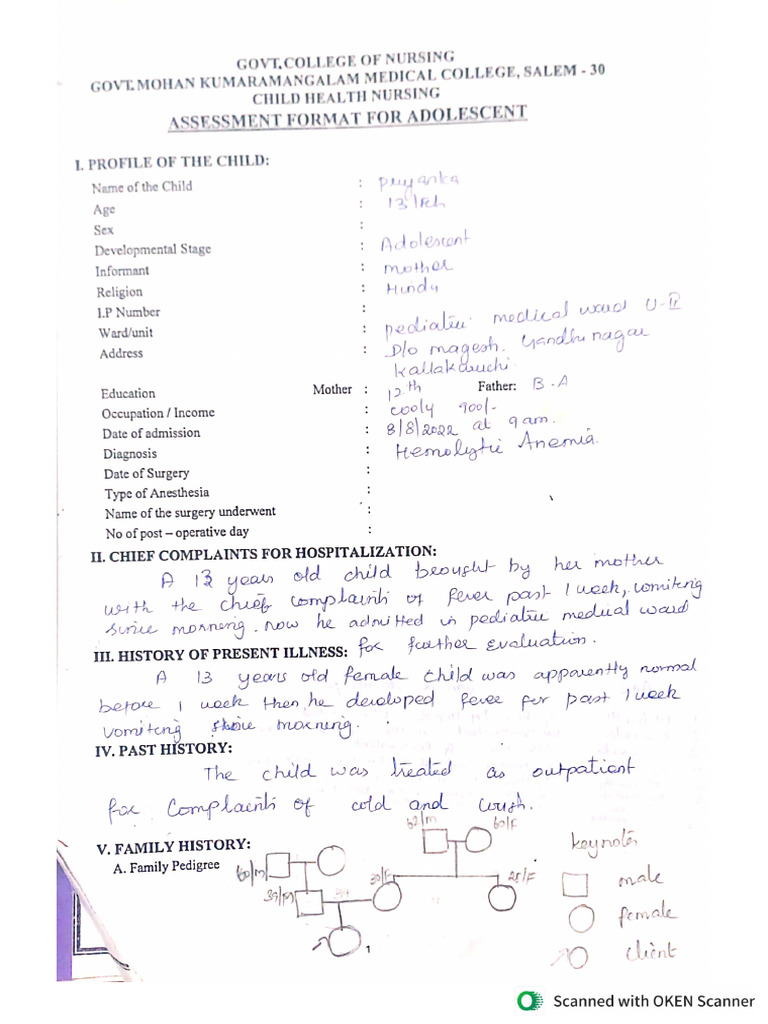 GOVT.COLLEGE OF NURSING
GOVT.MOHAN KUMARAMANGALAM MEDICAL COLLEGE, SALEM - 30
CHILD HEALTH NURSING
ASSESSMENT FORMAT FOR ADOLESCENT
I. PROFILE OF THE CHILD:
Name of the Child : Priyanka
Age : 13 / Feh
Sex :
Developmental Stage : Adolescent
Informant : mother
Religion : Hindu
I.P Number :
Ward/unit : pediatric medical ward U-II
Address : D/o magesh. Gandhi nagar
Kallakuruchi.
Education Mother : 12th Father: B.A
Occupation / Income : cooly 900/-
Date of admission : 8/8/2022 at 9 am.
Diagnosis : Hemolytic Anemia.
Date of Surgery :
Type of Anesthesia :
Name of the surgery underwent :
No of post – operative day :
II. CHIEF COMPLAINTS FOR HOSPITALIZATION:
A 13 years old child brought by her mother
with the chief complaints of fever past 1 week, vomiting
since morning. now he admitted in pediatric medical ward
III. HISTORY OF PRESENT ILLNESS: for further evaluation.
A 13 years old female child was apparently normal
before 1 week then, he developed fever for past 1 week
vomiting since morning.
IV. PAST HISTORY:
The child was treated as outpatient
for complaints of cold and
V. FAMILY HISTORY:
A. Family Pedigree
62/M 60/F
60/M
39/M 30/F 28/F
1
keynotes
male
female
client
Scanned with OKEN Scanner